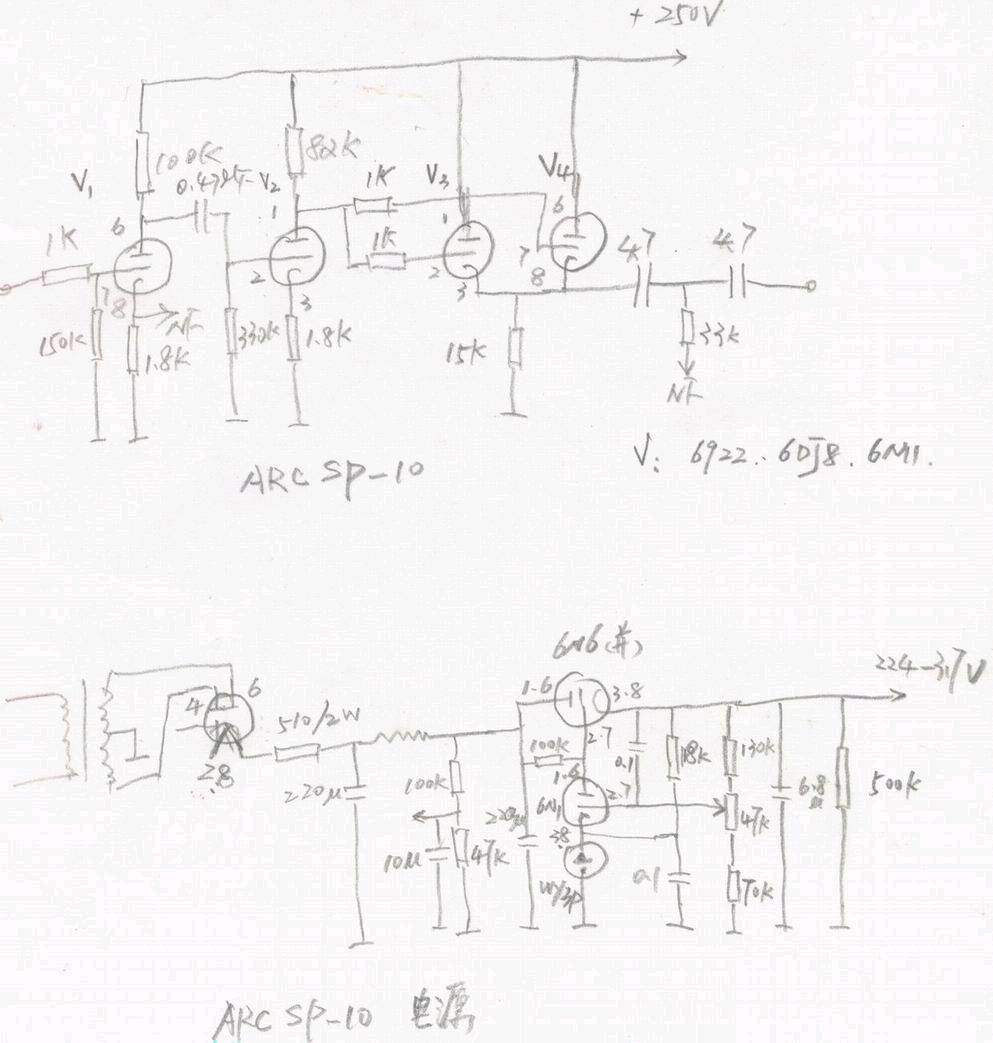 +250V
100K
82K
V1
0.47
V2
1K
V3
V4
6
1
1
6
1K
1K
47
47
7
2
2
7
8
3
3
8
NF
150K
1.8K
330K
1.8K
15K
33K
NF
ARC SP-10
V: 6922.. 6DJ8. 6N1.
6N6(并)
224-317V
4
6
1.6
3.8
510/2W
2.8
2.7
100K
18K
130K
220μ
100K
0.1
1.6
6N1
2.7
220μ
47K
6.8μ
500K
3.8
10μ
47K
0.1
70K
ARC SP-10 电源